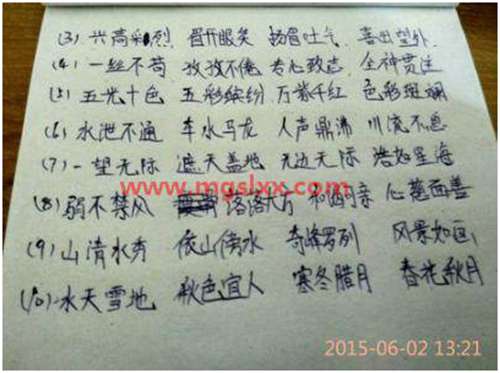 (3) 兴高采烈 眉开眼笑 扬眉吐气 喜出望外
(4) 一丝不苟 孜孜不倦 专心致志 全神贯注
(5) 五光十色 五彩缤纷 万紫千红 色彩斑斓
(6) 水泄不通 车水马龙 人声鼎沸 川流不息
(7) 一望无际 遮天盖地 无边无际 浩如星海
www.mgslxx.com
(8) 弱不禁风 落落大方 和蔼可亲 心慈面善
(9) 山清水秀 依山傍水 奇峰罗列 风景如画
(10) 水天雪地 秋色宜人 寒冬腊月 春花秋月
2015-06-02 13:21